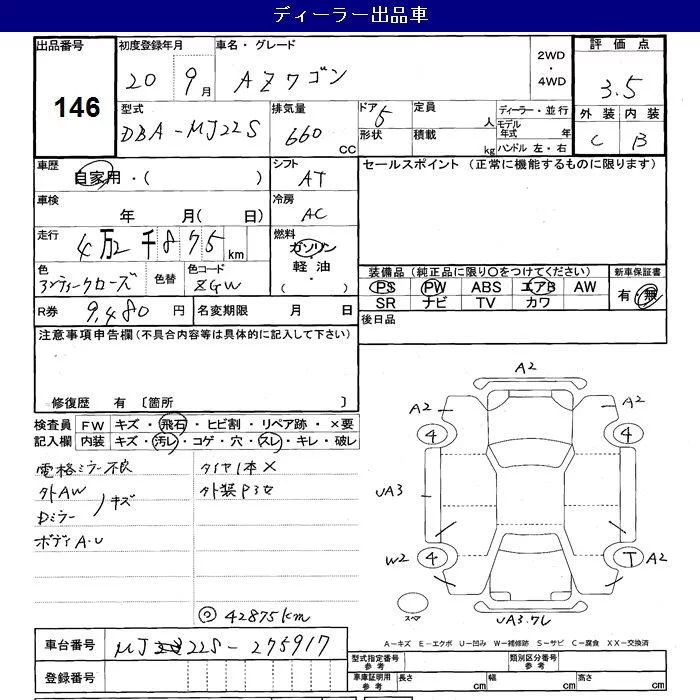 ディーラー出品車
出品番号 初度登録年月 車名・グレード 2WD・4WD 評価点
146 20 9月 AZワゴン 3.5
型式 排気量 ドア 定員 ディーラー・並行 外装 内装
DBA-MJ22S 660cc 5 人 モデル年式 年 C B
形状 積載 kg ハンドル 左・右
車歴 シフト セールスポイント (正常に機能するものに限ります)
自家用・( ) AT
車検 冷房
年 月( 日) AC
走行 燃料
4万2千875km ガソリン・軽油・( )
色 色替 色コード 装備品 (純正品に限り○をつけてください) 新車保証書
アンティークローズ ZGW PS PW ABS エアB AW 有・無
SR ナビ TV カワ
R券 9,480円 名変期限 月 日 後日品
注意事項申告欄 (不具合内容等は具体的に記入して下さい)
修復歴 有 〔箇所 〕
検査員 FW キズ・飛石・ヒビ割・リペア跡・×要
記入欄 内装 キズ・汚レ・コゲ・穴・スレ・キレ・破レ
電格ミラー不良 タイヤ1本×
外AW キズ 外装P3女
Dミラー
ボディA・U
◎42875km
A2
A2 A2
4 4
UA3 A3
W2 4 T A2
スペア UA3.フレ
A-キズ E-エクボ U-凹み W-補修跡 S-サビ C-腐食 XX-交換済
車台番号 MJ22S-275917
型式指定番号 参考 類別区分番号 参考
登録番号
車庫証明用 参考 長さ cm 幅 cm 高さ cm